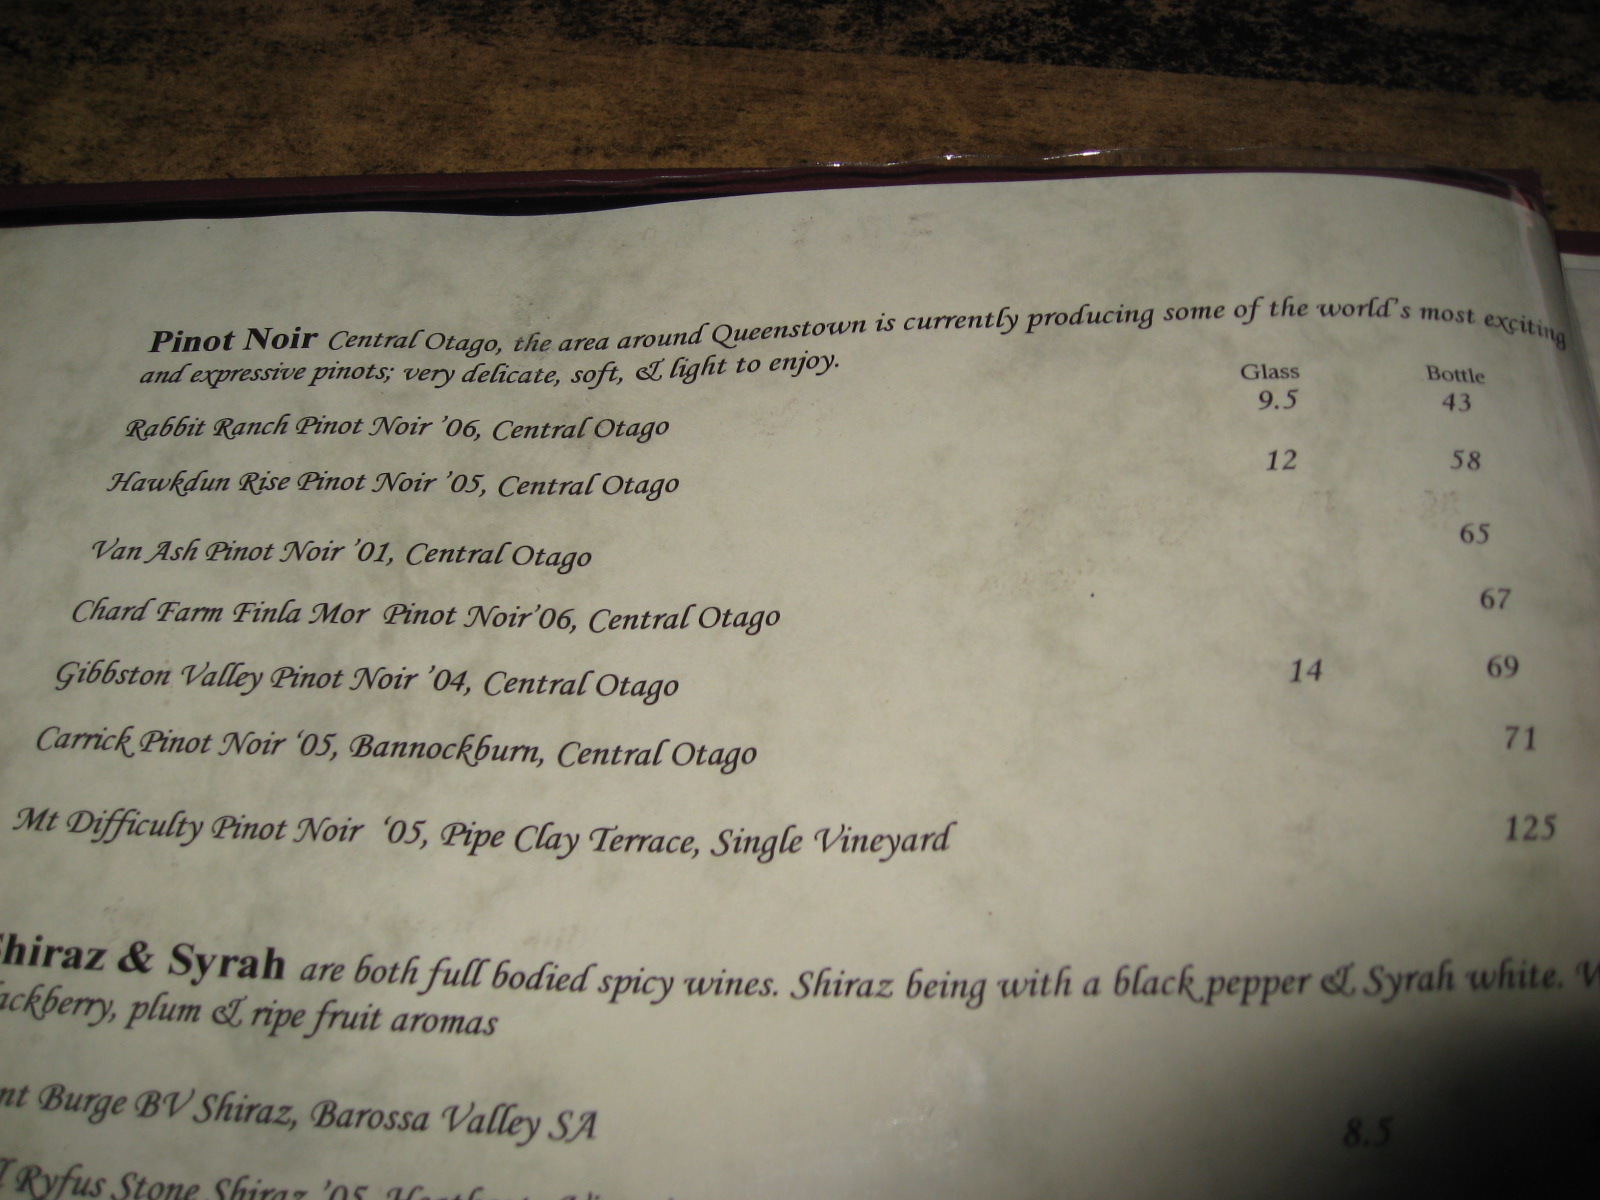 Pinot Noir Central Otago, the area around Queenstown is currently producing some of the world's most exciting
and expressive pinots; very delicate, soft, & light to enjoy.
Glass Bottle
Rabbit Ranch Pinot Noir '06, Central Otago 9.5 43
Hawkdun Rise Pinot Noir '05, Central Otago 12 58
Van Ash Pinot Noir '01, Central Otago 65
Chard Farm Finla Mor Pinot Noir'06, Central Otago 67
Gibbston Valley Pinot Noir '04, Central Otago 14 69
Carrick Pinot Noir '05, Bannockburn, Central Otago 71
Mt Difficulty Pinot Noir '05, Pipe Clay Terrace, Single Vineyard 125
Shiraz & Syrah are both full bodied spicy wines. Shiraz being with a black pepper & Syrah white.
ackberry, plum & ripe fruit aromas
nt Burge BV Shiraz, Barossa Valley SA 8.5
Ryfus Stone Shiraz '05,